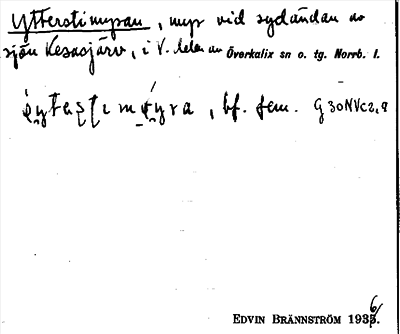 Ytterstimyran, myr vid sydändan av
sjön Kesasjärv, i V. delen av Överkalix sn o. tg. Norrb. l.
bf. fem.
EDVIN BRÄNNSTRÖM 1936.